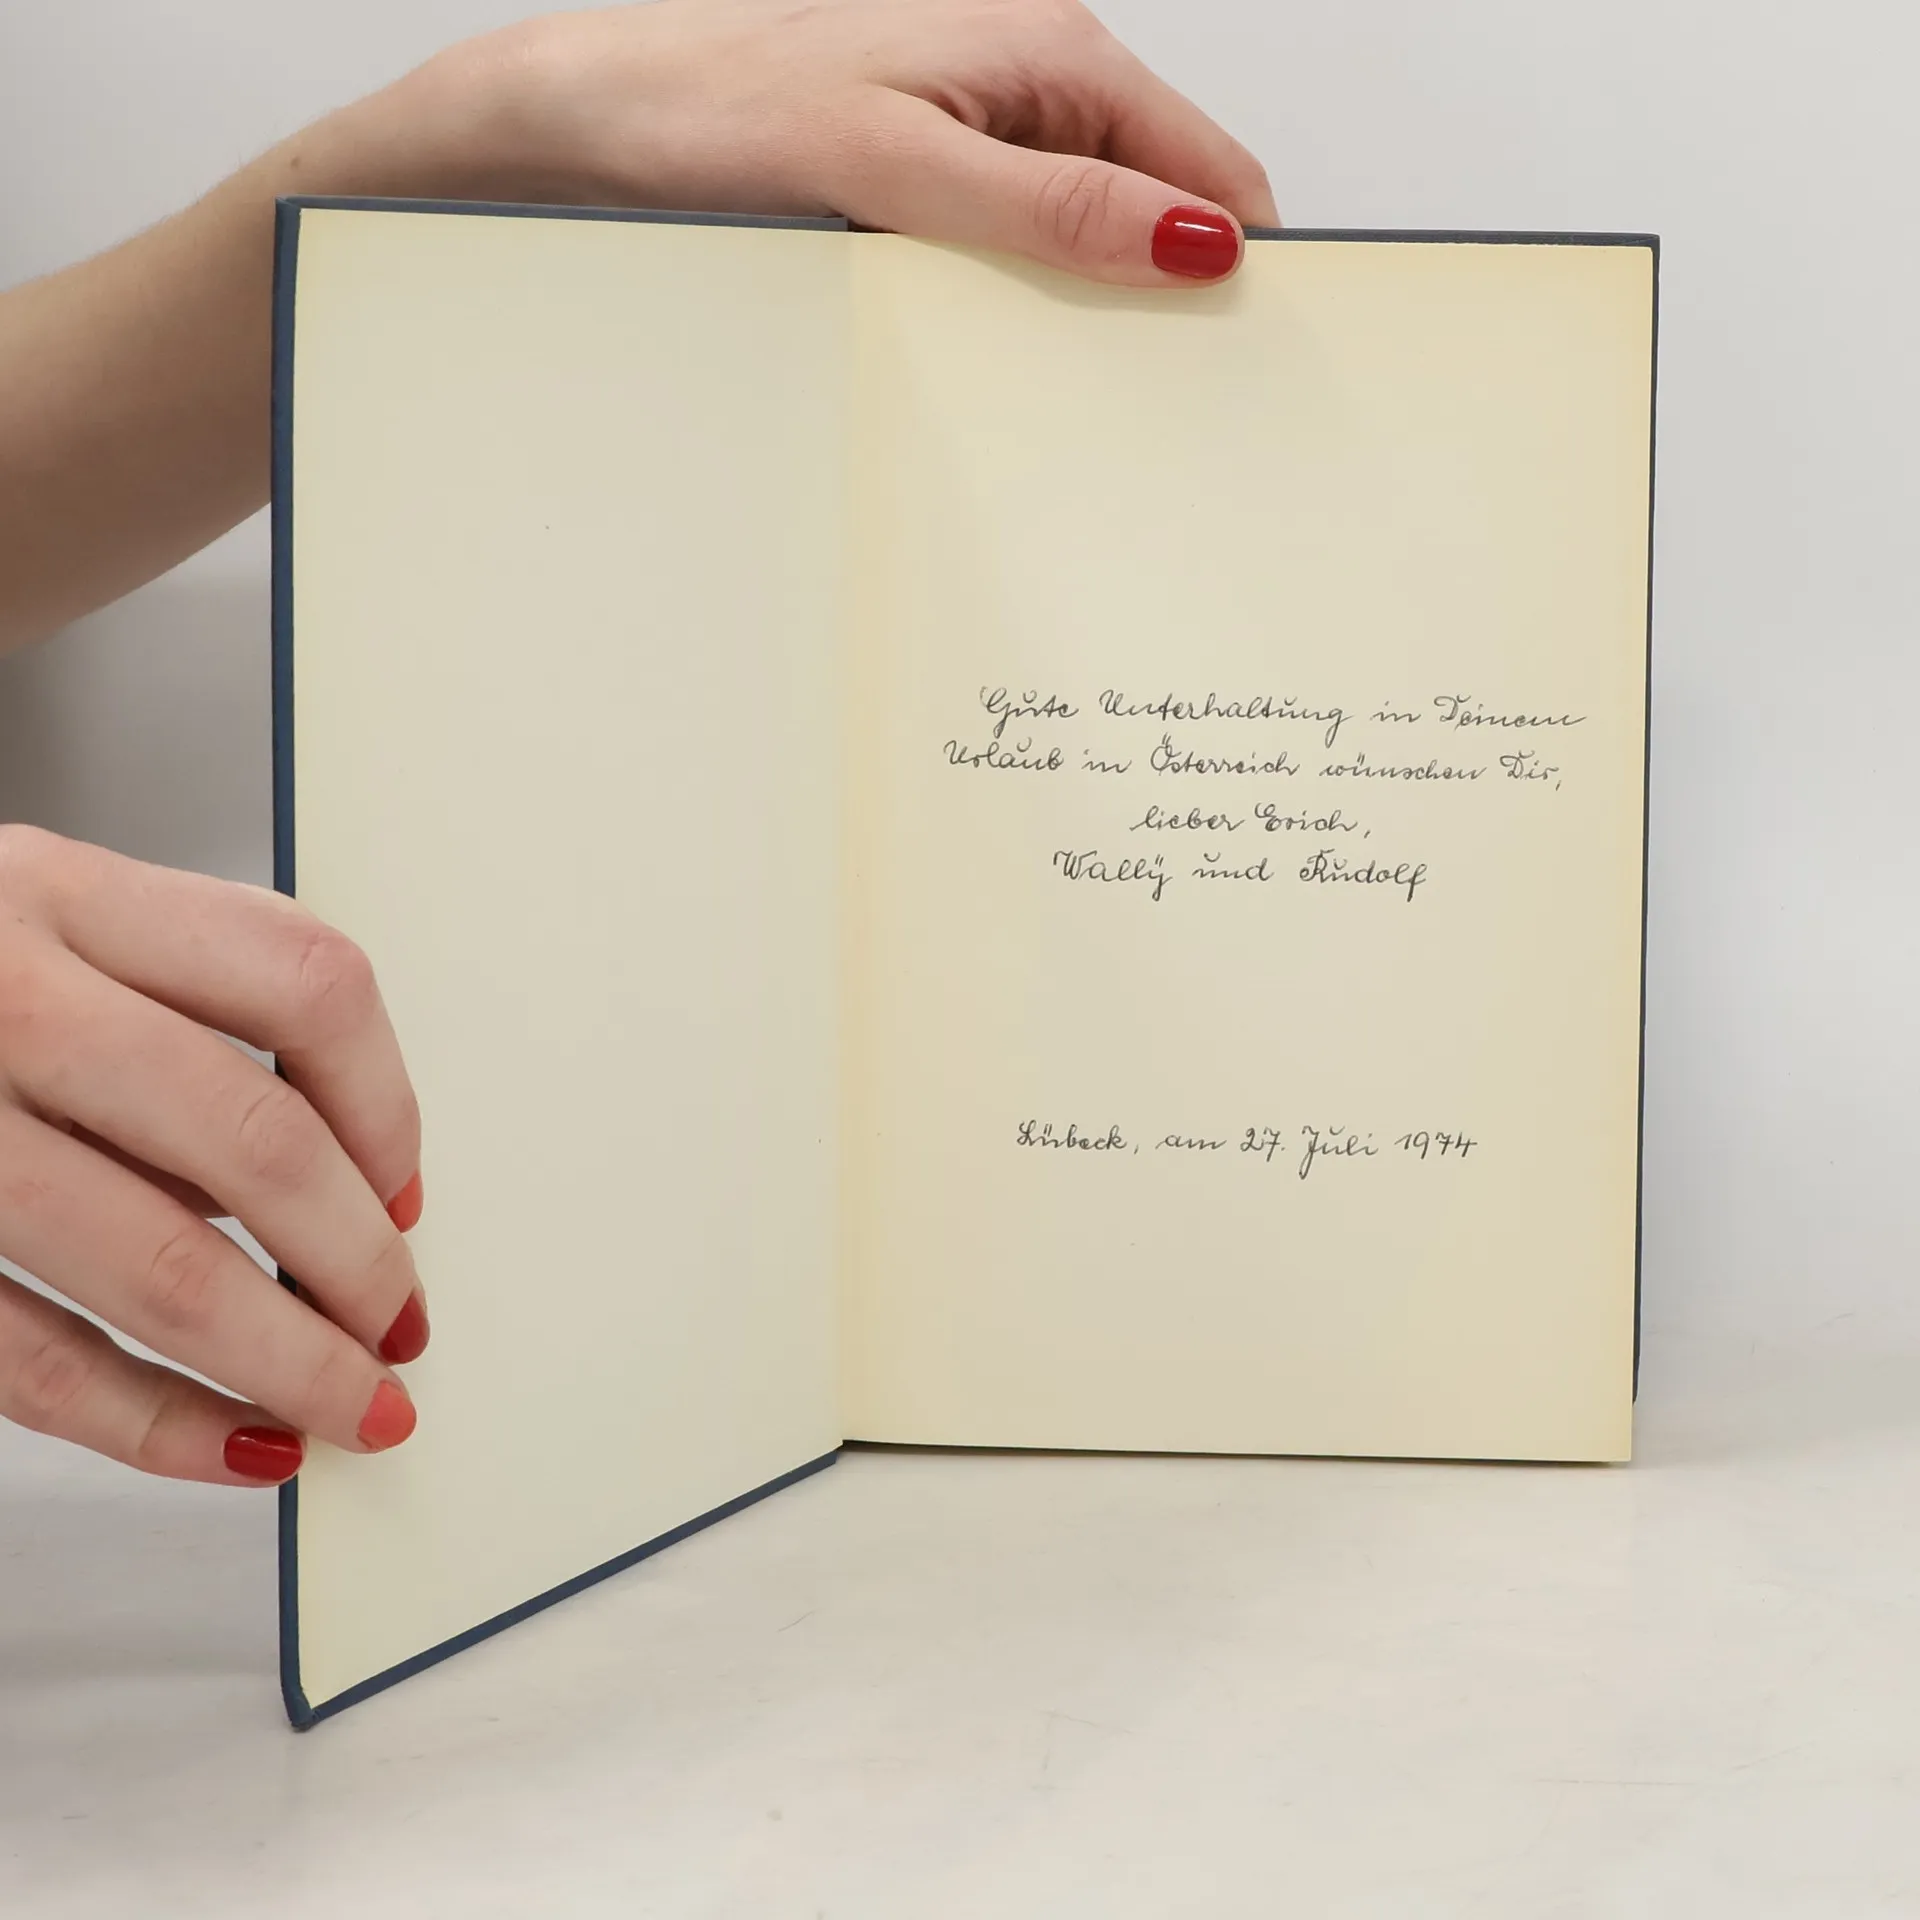 Gute Unterhaltung in Deinem
Urlaub in Österreich wünschen Dir,
lieber Erich,
Wally und Rudolf
Lübeck, am 27. Juli 1974